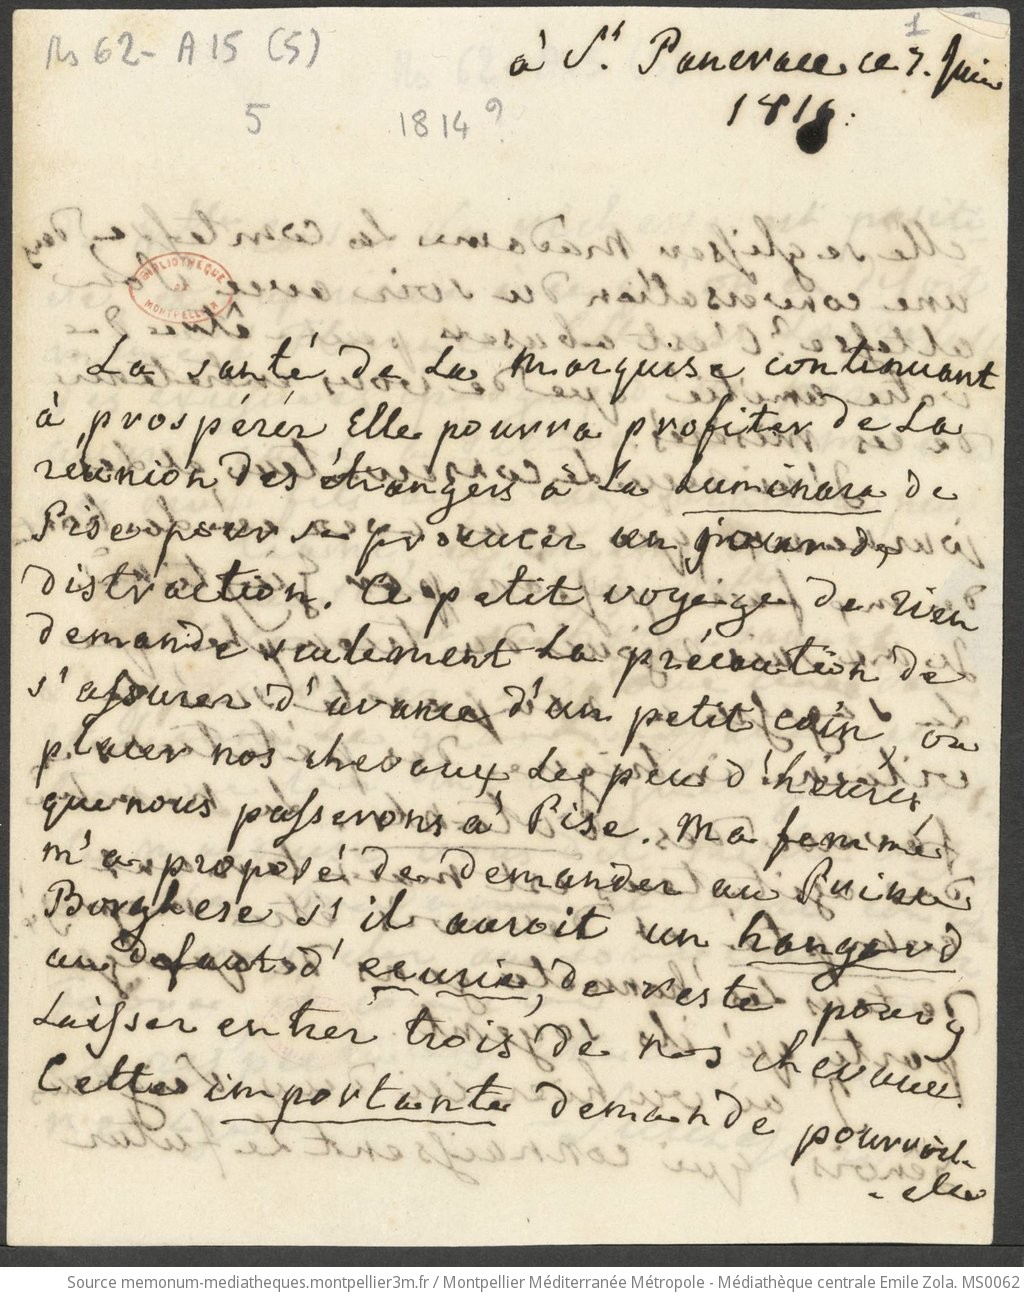 Ms 62 - A 15 (5)
1
à St. Pancrace ce 7. Juin
181
5
1814?
BIBLIOTHEQUE
MONTPELLIER
La santé de la Marquise continuant
à prospérér Elle pourra profiter de La
reunion des étrangers à La Luminara de
Pise pour se procurer un jour de
distraction. Ce petit voyage de rien
demande seulement La précaution de
s'assurer d'avance d'un petit coin où
placer nos chevaux Le peu d'heures
que nous passerons à Pise. Ma femme
m'a proposé de demander au Prince
Borghese s'il auroit un hangard
au defaut d'ecurie, de reste pour y
Laisser entrer trois de nos chevaux.
Cette importante demande pourroit-
-elle
Source memonum-mediatheques.montpellier3m.fr / Montpellier Méditerranée Métropole - Médiathèque centrale Emile Zola. MS0062